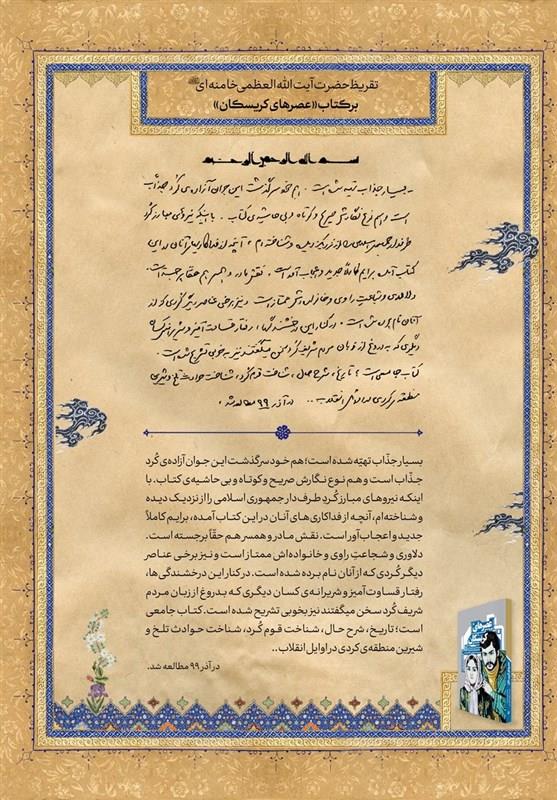 تقریظ حضرت آیت الله العظمی خامنه ای
بر کتاب «عصرهای کریسکان»
بسم الله الرحمن الرحیم
- بسیار جذاب تهیه شده است. هم خود سرگذشت این جوان آزاده‌ی کُرد جذّاب
است و هم نوع نگارش صریح و کوتاه و بی حاشیه‌ی کتاب. با اینکه نیروهای مبارز کُرد
طرفدار جمهوری اسلامی را از نزدیک دیده و شناخته‌ام، آنچه از فداکاریهای آنان در این
کتاب آمده، برایم کاملاً جدید و اعجاب‌آور است. نقش مادر و همسر هم حقّاً برجسته است.
دلاوری و شجاعت راوی و خانواده‌اش ممتاز است و نیز برخی عناصر دیگر کُردی که از
آنان نام برده شده است. در کنار این درخشندگی‌ها، رفتار قساوت‌آمیز و شریرانه‌ی کسان
دیگری که بدروغ از زبان مردم شریف کُرد سخن میگفتند نیز به خوبی تشریح شده است.
کتاب جامعی است؛ تاریخ، شرح حال، شناخت قوم کُرد، شناخت حوادث تلخ و شیرین
منطقه‌ی کردی در اوایل انقلاب.. در آذر ۹۹ مطالعه شد.
بسیار جذّاب تهیّه شده است؛ هم خود سرگذشت این جوان آزاده‌ی کُرد
جذّاب است و هم نوع نگارش صریح و کوتاه و بی حاشیه‌ی کتاب. با
اینکه نیروهای مبارز کُردِ طرف‌دار جمهوری اسلامی را از نزدیک دیده
و شناخته‌ام، آنچه از فداکاری‌های آنان در این کتاب آمده، برایم کاملاً
جدید و اعجاب‌آور است. نقش مادر و همسر هم حقّاً برجسته است.
دلاوری و شجاعتِ راوی و خانواده‌اش ممتاز است و نیز برخی عناصر
دیگر کُردی که از آنان نام برده شده است. در کنار این درخشندگی‌ها،
رفتار قساوت‌آمیز و شریرانه‌ی کسان دیگری که بدروغ از زبان مردم
شریف کُرد سخن میگفتند نیز بخوبی تشریح شده است. کتاب جامعی
است؛ تاریخ، شرح حال، شناخت قوم کُرد، شناخت حوادث تلخ و
شیرین منطقه‌ی کردی در اوایل انقلاب..
در آذر ۹۹ مطالعه شد.
عصرهای
کریسکان